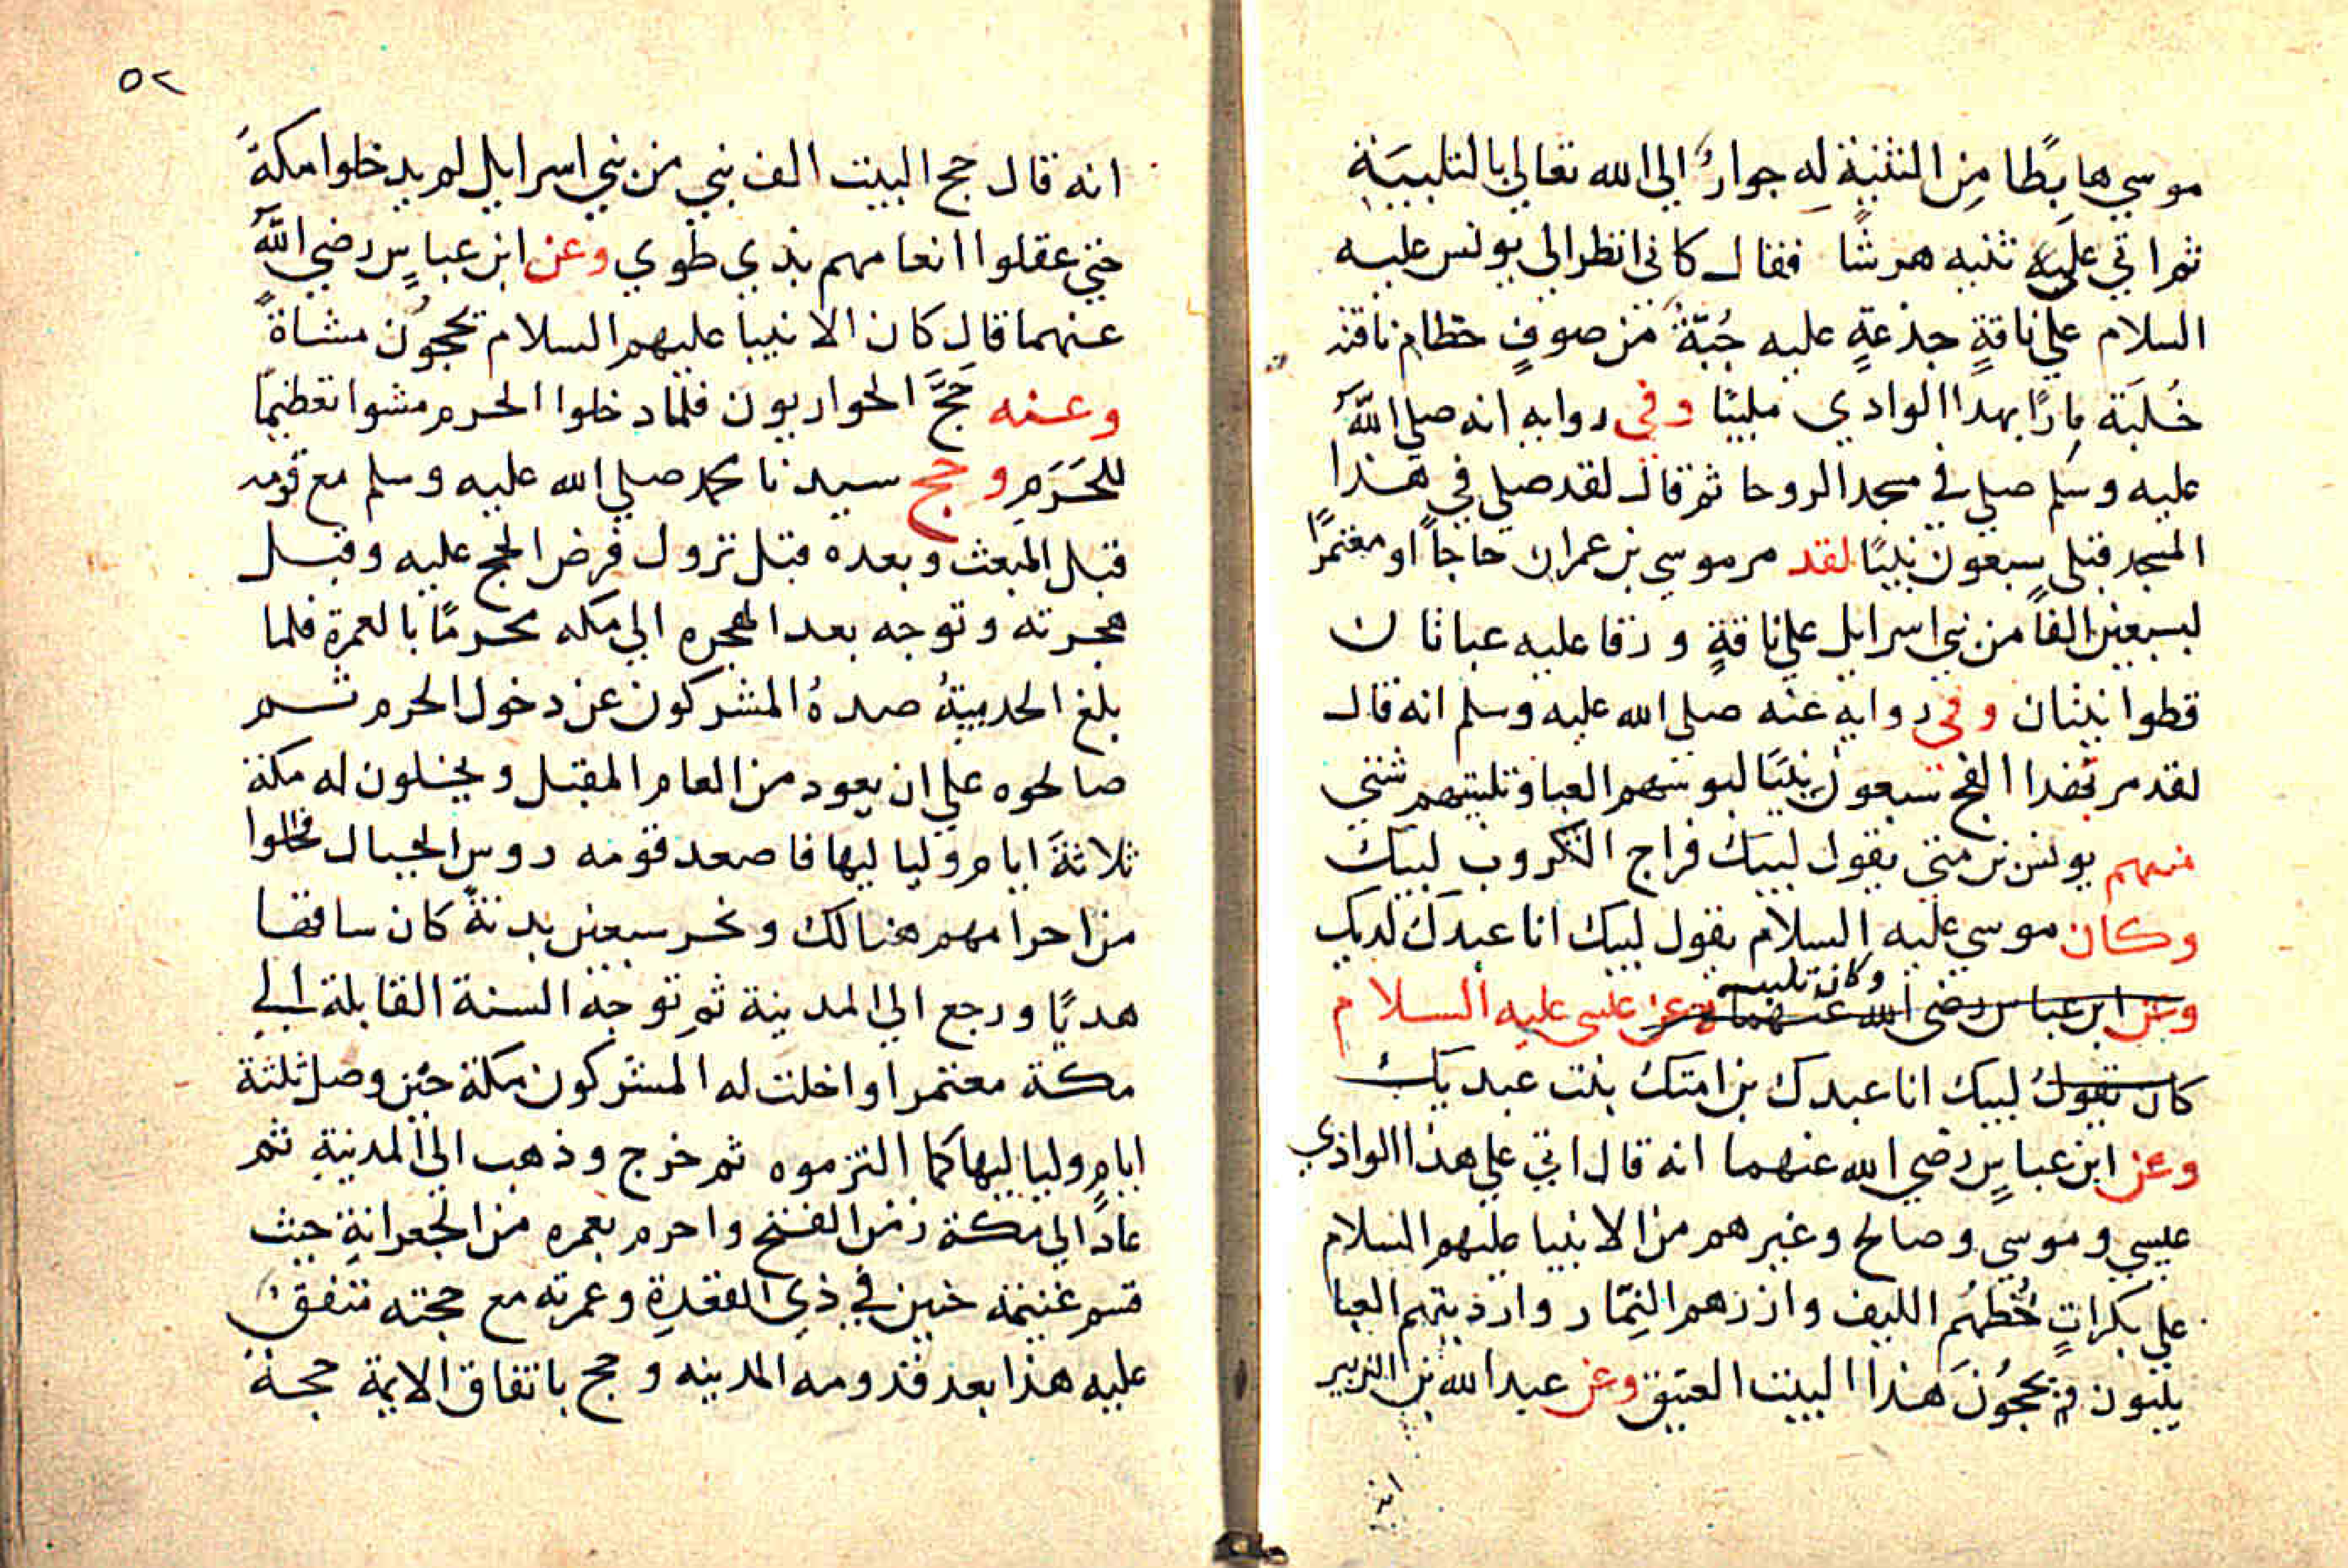 موسي هابطًا مِن الثنية له جوارٌ الي الله تعالي بالتلبيَة
ثم اتي علي ثنيه هرشًا فقال كاني انظر الي يونس عليه
السلام علي ناقةٍ جذعةٍ عليه جُبّةٌ من صوفٍ خطام ناقته
خُلبَة مارًا بهدا الوادي ملبيًا وفي روايه انه صلي اللهُ
عليه وسلم صلي في مسجد الروحا ثم قال لقد صلي في هذا
المسجد قبلي سبعون نبيًا لقد مر موسي بن عمران حاجاً او معتمرًا
لبسبعين الفاً من بني اسرايل علي ناقةٍ ورقا عليه عباتان
قطوانيتان وفي روايه عنه صلي الله عليه وسلم انه قال
لقد مر بفدا الفج سبعون نبيًا لبوسهم العبا وتلبيتهم شتي
منهم يونس بن متي يقول لبيك فراج الكروب لبيك
وكان موسي عليه السلام يقول لبيك انا عبدك لديك
وكان تلبيه
وعن ابن عباس رضي الله عنهما وعن عيسي عليه السلام
كان يقول لبيك انا عبدك بن امتك بنت عبديك
وعن ابن عباسٍ رضي الله عنهما انه قال اتي علي هذا الوادي
عيسي وموسي وصالح وغيرهم من الانبيا عليهم السلام
علي بكراتٍ خُطُمُهُم الليف وازرهم النِمّار وارديتهم العبا
يلبون يحجُونَ هذا البيت العتيق وعن عبد الله بن الزبير
انه
٥٢
انه قال حج البيت الف نبي من بني اسرايل لم يدخلوا مكةً
حتي عقلوا انعامهم بذي طوي وعن ابن عباسٍ رضي اللهُ
عنهما قال كان الانبيا عليهم السلام يحجُون مشاةً
وعنه حَجَّ الحواريون فلما دخلوا الحرم مشوا تعظيمًا
للحَرَمِ وحج سيدنا محمد صلي الله عليه وسلم مع قومه
قبل المبعث وبعده قبل نزول فرض الحج عليه وقبل
هجرته وتوجه بعد الهجره الي مكه محرمًا بالعمرة فلما
بلغ الحديبيةُ صدهُ المشركون عن دخول الحرم ثم
صالحوه علي ان يعود من العام المقبل ويخلون له مكة
ثلاثةَ ايام ولياليها فاصعد قومه روس الجبال فحلوا
من احرامهم هنالك ونحر سبعين بدنةً كان ساقها
هديًا ورجع الي المدينة ثم توجه السنة القابلة الي
مكة معتمرا واخلت له المشركون مكة حين وصل ثلثة
ايامٍ ولياليها كما التزموه ثم خرج وذهب الي المدينة ثم
عاد الي مكة زمن الفتح واحرم بعمره من الجعرانة حيث
قسم غنيمة حنين في ذي القعدةِ وعمرته مع حجته متفقٌ
عليه هذا بعد قدومه المدينه وحج باتفاق الايمة حجة